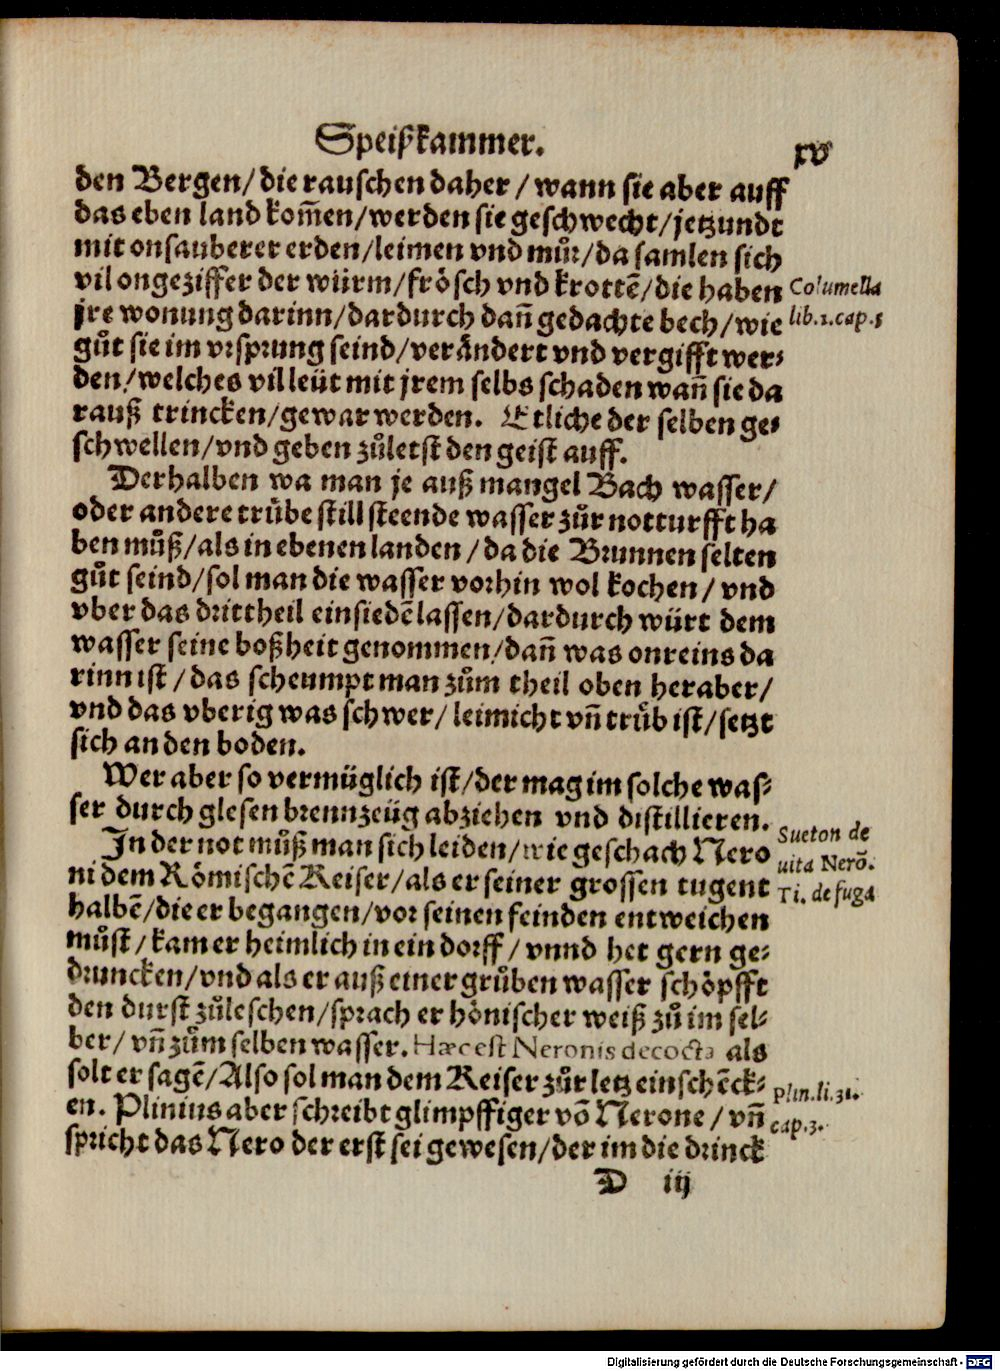 Speißkammer.
xv
den Bergen/die rauschen daher/wann sie aber auff
das eben land kom̃en/werden sie geschwecht/jetzundt
mit onsauberer erden/leimen vnd můr/da samlen sich
vil ongeziffer der würm/frösch vnd krottẽ/die haben
jre wonung darinn/dardurch dañ gedachte bech/wie
gůt sie im vrsprung seind/verändert vnd vergifft wer-
den/welches vil leüt mit jrem selbs schaden wañ sie da
rauß trincken/gewar werden. Etliche der selben ge-
schwellen/vnd geben zůletst den geist auff.
Columella
lib.1.cap.5
Derhalben wa man je auß mangel Bach wasser/
oder andere trůbe still steende wasser zůr notturfft ha
ben můß/als in ebenen landen/da die Brunnen selten
gůt seind/sol man die wasser vorhin wol kochen/vnd
vber das drittheil einsiedẽ lassen/dardurch würt dem
wasser seine boßheit genommen/dañ was onreins da
rinn ist/das scheumpt man zům theil oben heraber/
vnd das vberig was schwer/leimicht vñ trůb ist/setzt
sich an den boden.
Wer aber so vermüglich ist/der mag im solche was-
ser durch glesen brennzeüg abziehen vnd distillieren.
In der not můß man sich leiden/wie geschach Nero
ni dem Römischẽ Keiser/als er seiner grossen tugent
halbẽ/die er begangen/vor seinen feinden entweichen
můst/kam er heimlich in ein dorff/vnnd het gern ge-
druncken/vnd als er auß einer grůben wasser schöpfft
den durst zůleschen/sprach er hönischer weiß zů im sel-
ber/vñ zům selben wasser. Hæc est Neronis decocta als
solt er sagẽ/Also sol man dem Keiser zůr letz einschẽck-
en. Plinius aber schreibt glimpffiger võ Nerone/vñ
spricht das Nero der erst sei gewesen/der im die drinck
Sueton de
uita Nerõ.
Ti. de fuga
Plin.li.31.
cap.3.
D iij
Digitalisierung gefördert durch die Deutsche Forschungsgemeinschaft - DFG